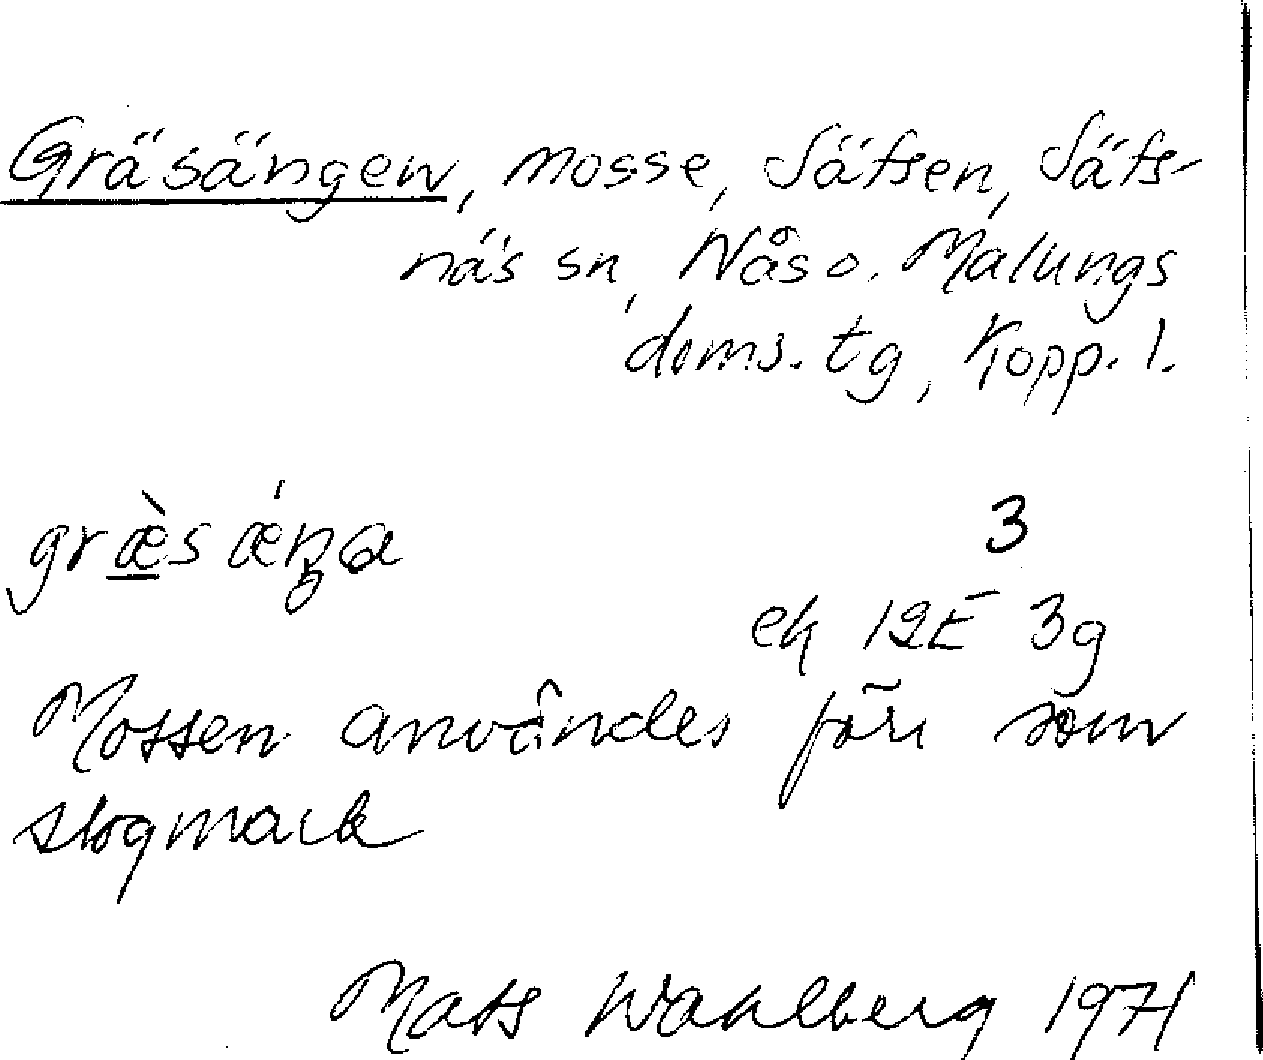 Gräsängen, mosse, Sätsen, Säfs-
näs sn, Nås o. Malungs
doms. tg, Kopp. l.
græ̀sǽŋa
3
ek 12E 3g
Mossen användes förr som
slogmark
Mats Wahlberg 1971